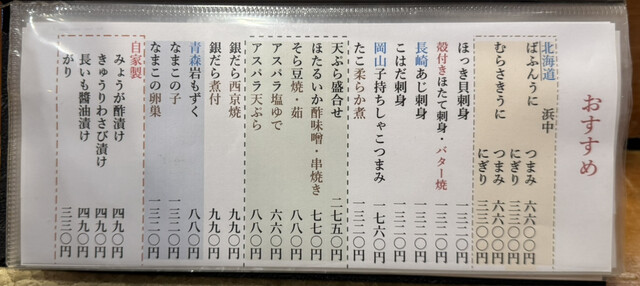 おすすめ
北海道 浜中
ばふんうに つまみ 六六〇〇円
にぎり 三三〇〇円
むらさきうに つまみ 六六〇〇円
にぎり 三三〇〇円
ほっき貝刺身 一三二〇円
殻付きほたて刺身・バター焼 一三二〇円
長崎あじ刺身 一三二〇円
こはだ刺身 一三二〇円
岡山子持ちしゃこつまみ 一七六〇円
たこ柔らか煮 一三二〇円
天ぷら盛合せ 二七五〇円
ほたるいか酢味噌・串焼き 七七〇円
そら豆焼・茹 八八〇円
アスパラ塩ゆで 六六〇円
アスパラ天ぷら 八八〇円
銀だら西京焼 九九〇円
銀だら煮付 九九〇円
青森岩もずく 八八〇円
なまこの子 一三二〇円
なまこの卵巣 一三二〇円
自家製
みょうが酢漬け 四九〇円
きゅうりわさび漬け 四九〇円
長いも醬油漬け 四九〇円
がり 三三〇円